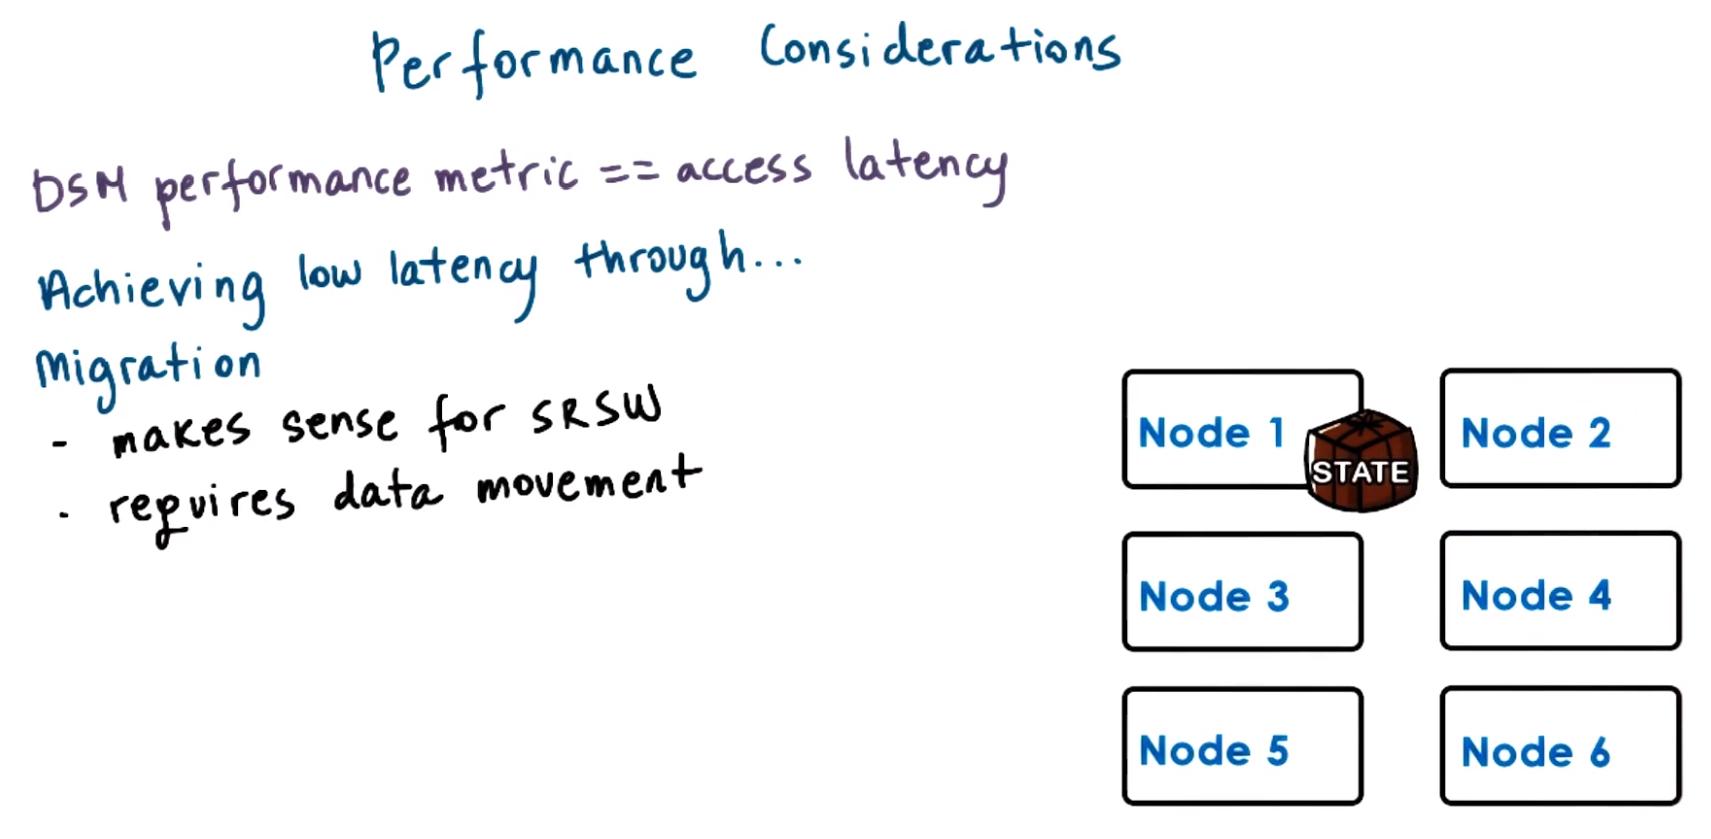 Performance Considerations
DSM performance metric == access latency
Achieving low latency through...
Migration
- makes sense for SRSW
- requires data movement
Node 1
STATE
Node 2
Node 3
Node 4
Node 5
Node 6